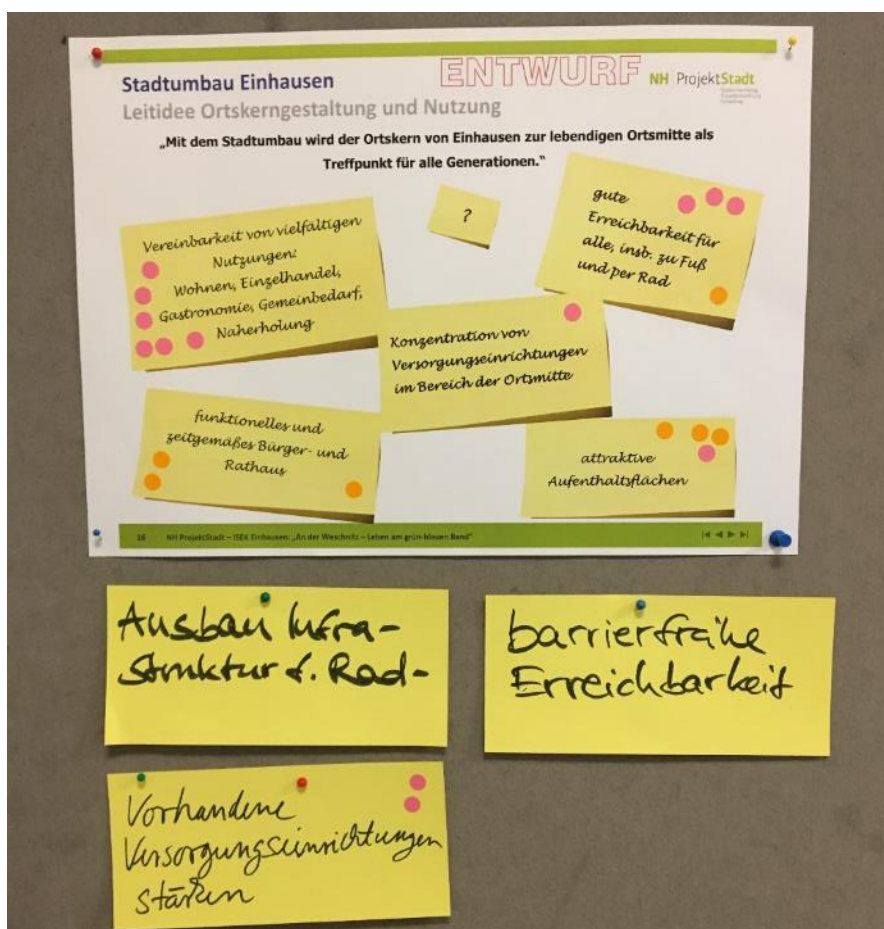 ENTWURF
Stadtumbau Einhausen
NH ProjektStadt
Leitidee Ortskerngestaltung und Nutzung
„Mit dem Stadtumbau wird der Ortskern von Einhausen zur lebendigen Ortsmitte als
Treffpunkt für alle Generationen.“
Vereinbarkeit von vielfältigen
Nutzungen:
Wohnen, Einzelhandel,
Gastronomie, Gemeinbedarf,
Naherholung
?
gute
Erreichbarkeit für
alle, insb. zu Fuß
und per Rad
Konzentration von
Versorgungseinrichtungen
im Bereich der Ortsmitte
funktionelles und
zeitgemäßes Bürger- und
Rathaus
attraktive
Aufenthaltsflächen
16 NH ProjektStadt – ISEK Einhausen: „An der Weschnitz – Leben am grün-blauen Band“
Ausbau Infra-
Struktur f. Rad-
barrierfreihe
Erreichbarkeit
Vorhandene
Versorgungseinrichtungen
stärken